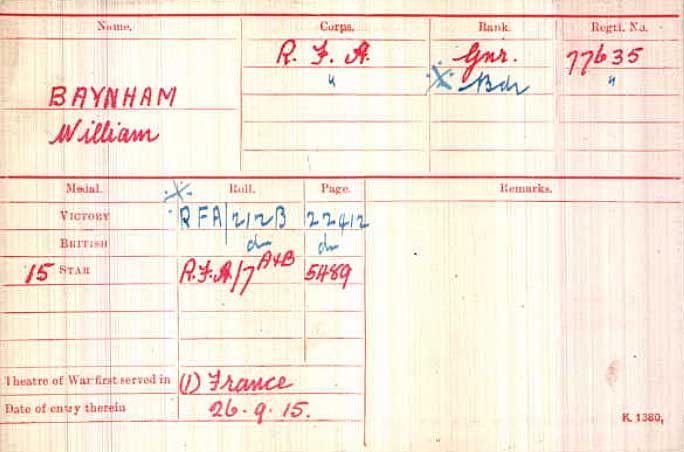 Name. Corps. Rank. Regtl. No.
R. F. A. Gnr. 77635
BAYNHAM " ※ Bdr "
William
Medal. ※ Roll. Page. Remarks.
VICTORY RFA/212B 22412
BRITISH do do
15 STAR R.F.A/7A+B 5489
Theatre of War first served in (1) France
Date of entry therein 26.9.15.
K. 1380,